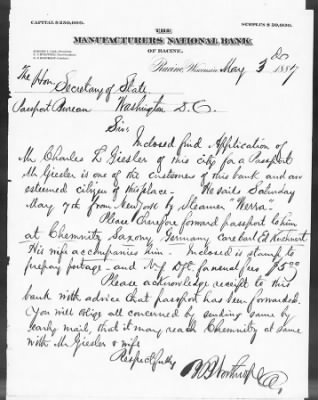 CAPITAL $250,000.
SURPLUS $50,000.
THE
MANUFACTURERS NATIONAL BANK
OF RACINE.
Racine, Wisconsin May 3d 1887
The Hon. Secretary of State
Passport Bureau Washington D.C.
Sir:
Inclosed find Application of
Mr Charles L Giesler of this city for a Passport
Mr Giesler is one of the customers of this bank and an
esteemed citizen of this place - He sails Saturday
May 7th from New York by steamer "Werra".
Please therefore forward passport to him
at Chemnitz Saxony Germany care Carl Ed
His wife accompanies him - Inclosed is stamp to
prepay postage - and N.Y. Dft. for usual fees $5.00
Please acknowledge receipt to this
bank with advice that passport has been forwarded.
You will oblige all concerned by sending same by
early mail, that it may reach Chemnitz at same
with Mr Giesler & wife
Respectfully
B B Northrop